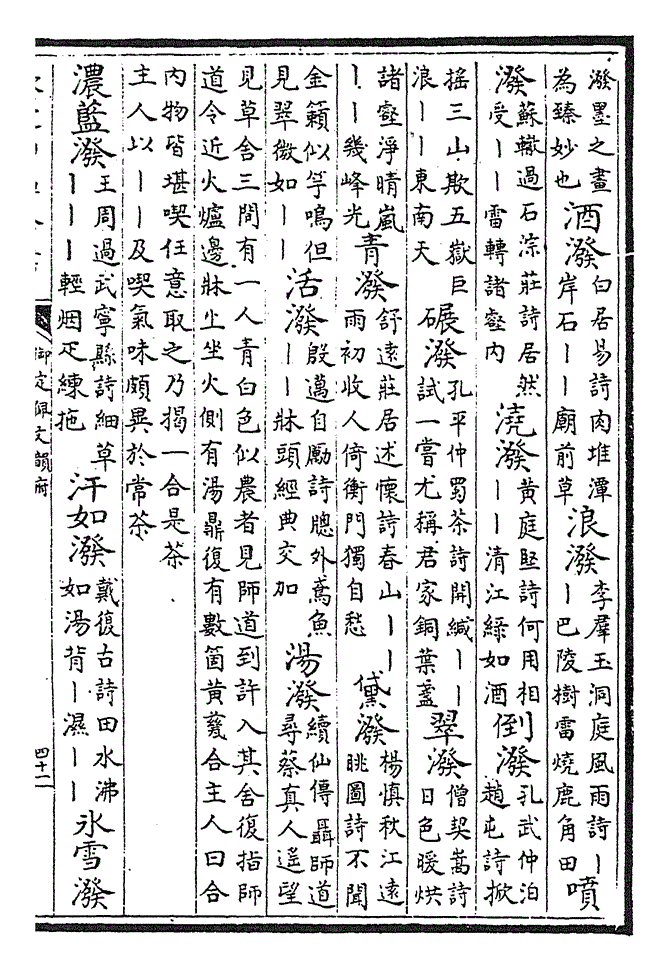 潑墨之畫
為臻妙也
酒潑
白居易詩肉堆潭
岸石丨丨廟前草
浪潑
李羣玉洞庭風雨詩丨
丨巴陵樹雷燒鹿角田
噴
潑
蘇轍過石淙莊詩居然
受丨丨雷轉諸壑內
澆潑
黃庭堅詩何用相
丨丨清江綠如酒
倒潑
孔武仲泊
趙屯詩掀
搖三山欺五嶽巨
浪丨丨東南天
碾潑
孔平仲蜀茶詩開緘丨丨
試一嘗尤稱君家銅葉盞
翠潑
僧契嵩詩
日色暖烘
諸壑淨晴嵐
丨丨幾峰光
青潑
舒遠莊居述懷詩春山丨丨
雨初收人倚衡門獨自愁
黛潑
楊慎秋江遠
眺圖詩不聞
金籟似竽鳴但
見翠微如丨丨
活潑
殷邁自勵詩牕外鳶魚
丨丨牀頭經典交加
湯潑
續仙傳聶師道
尋蔡真人遙望
見草舍三間有一人青白色似農者見師道到許入其舍復指師
道令近火爐邊牀上坐火側有湯鼎復有數箇黃甆合主人曰合
內物皆堪喫任意取之乃揭一合是茶
主人以丨丨及喫氣味頗異於常茶
濃藍潑
王周過武寧縣詩細草
丨丨丨輕烟疋練拖
汗如潑
戴復古詩田水沸
如湯背丨濕丨丨
氷雪潑
御定佩文韻府
四十二